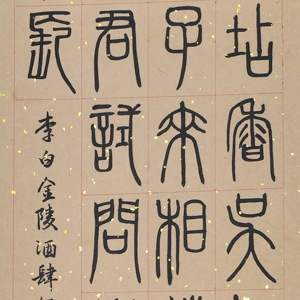 坫香吳
子來相
君試問
長
李白金陵酒肆